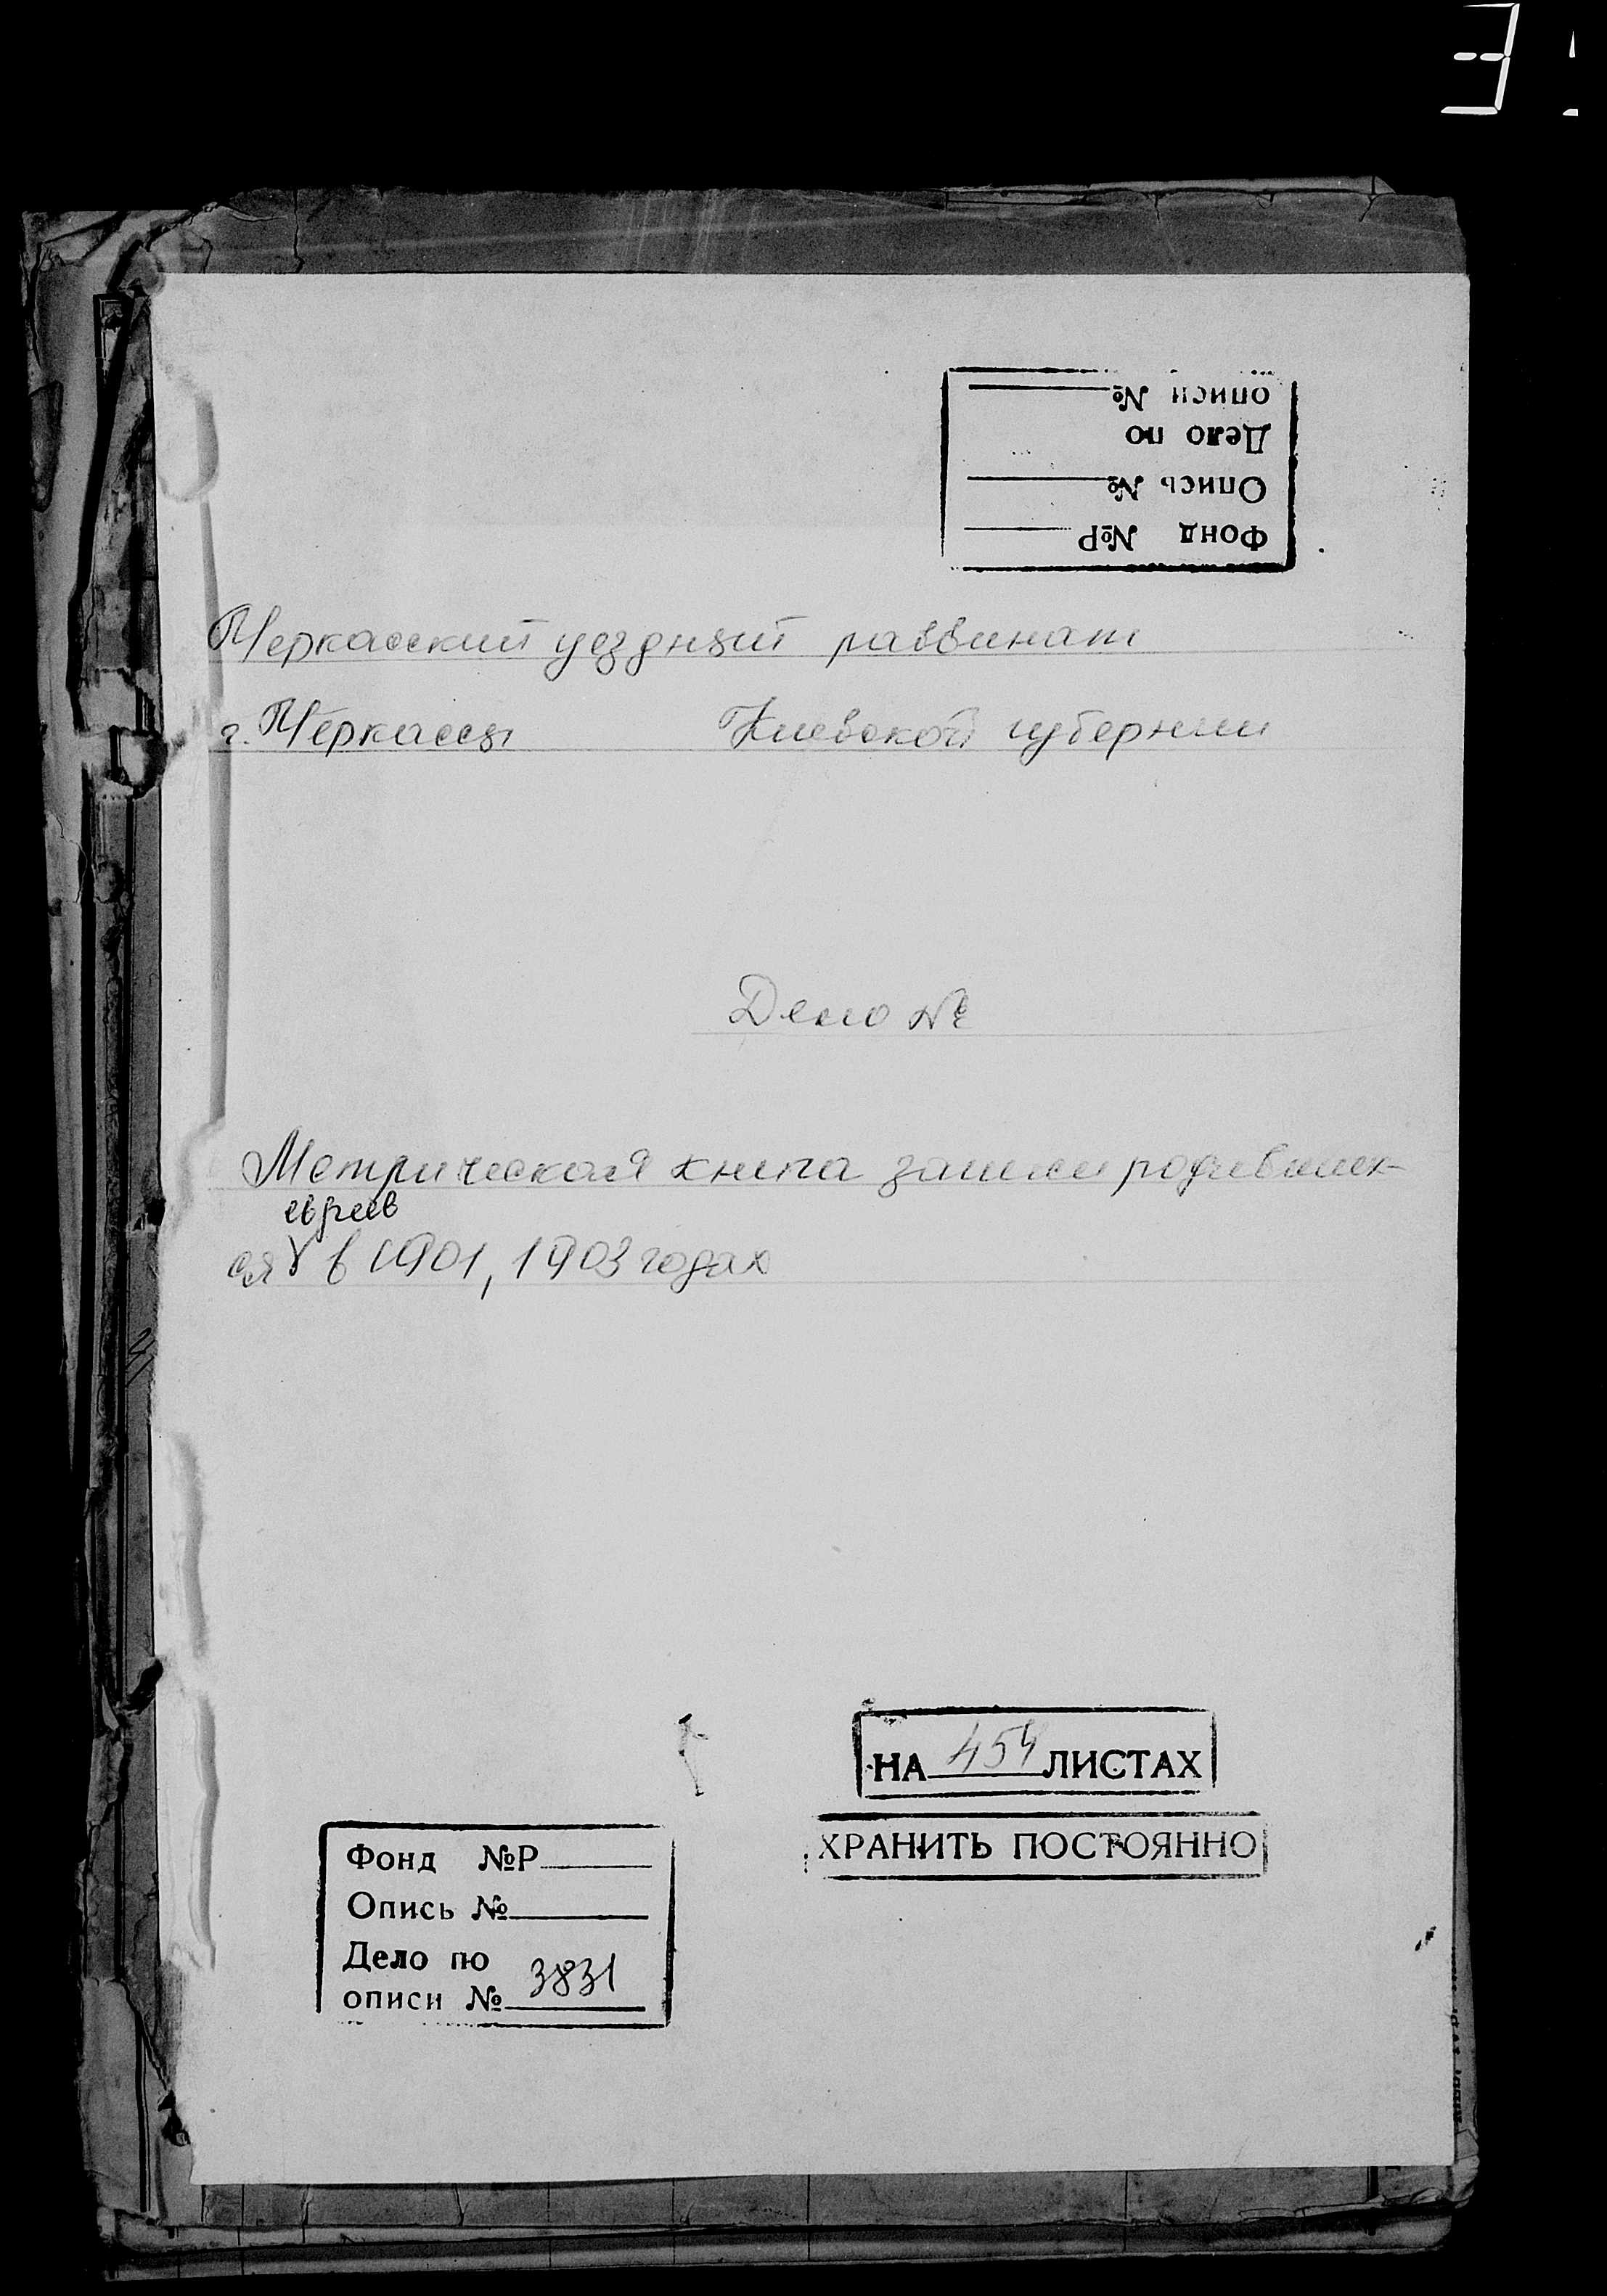 описи №
Дело по
Опись №
Фонд №Р
Черкасский уездный раввинат
г. Черкассы Киевской губернии
Дело №
Метрическая книга записи родивших-
евреев
ся в 1901, 1903 годах
НА 454 ЛИСТАХ
ХРАНИТЬ ПОСТОЯННО
Фонд №Р
Опись №
Дело по
описи № 3831